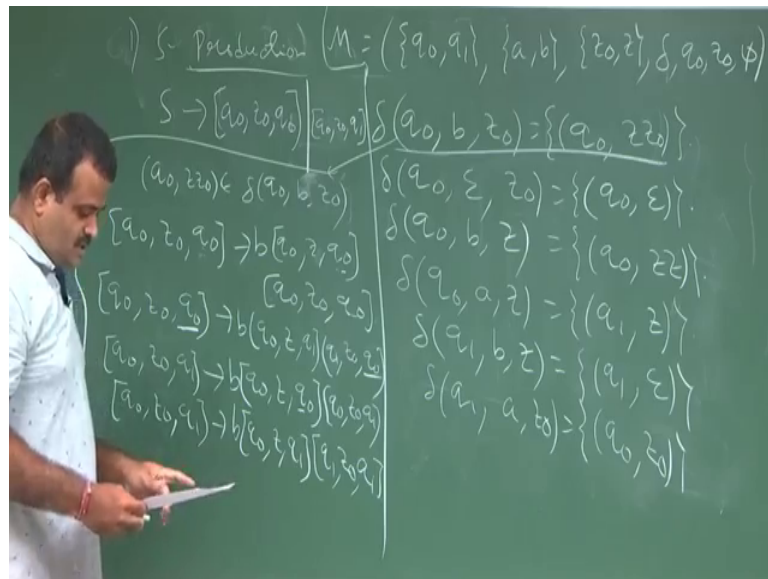 1) S- Production
S → [q0, z0, q0] | [q0, z0, q1]
(q0, zz0) ∈ δ(q0, b, z0)
[q0, z0, q0] → b[q0, z, q0]
[q0, z0, q0]
[q0, z0, q0] → b[q0, z, q1)(q1, z0, q0]
[q0, z0, q1] → b[q0, z, q0][q0, z0, q1]
[q0, z0, q1] → b[q0, z, q1][q1, z0, q1]
M = ({q0, q1}, {a, b}, {z0, z}, δ, q0, z0, φ)
δ(q0, b, z0) = {(q0, zz0)}.
δ(q0, ε, z0) = {(q0, ε)}.
δ(q0, b, z) = {(q0, zz)}.
δ(q0, a, z) = {(q1, z)}
δ(q1, b, z) = {(q1, ε)}
δ(q1, a, z0) = {(q0, z0)}